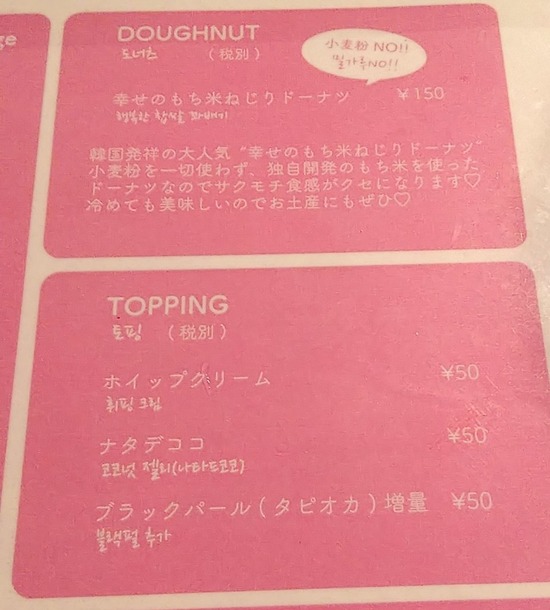 ge
DOUGHNUT
도너츠 （税別）
小麦粉 NO!!
밀가루NO!!
幸せのもち米ねじりドーナツ ¥150
행복한 찹쌀 꽈배기
韓国発祥の大人気“幸せのもち米ねじりドーナツ”
小麦粉を一切使わず、独自開発のもち米を使った
ドーナツなのでサクモチ食感がクセになります♡
冷めても美味しいのでお土産にもぜひ♡
TOPPING
토핑 （税別）
ホイップクリーム ¥50
휘핑 크림
ナタデココ ¥50
코코넛 젤리(나타드코코)
ブラックパール（タピオカ）増量 ¥50
블랙펄 추가